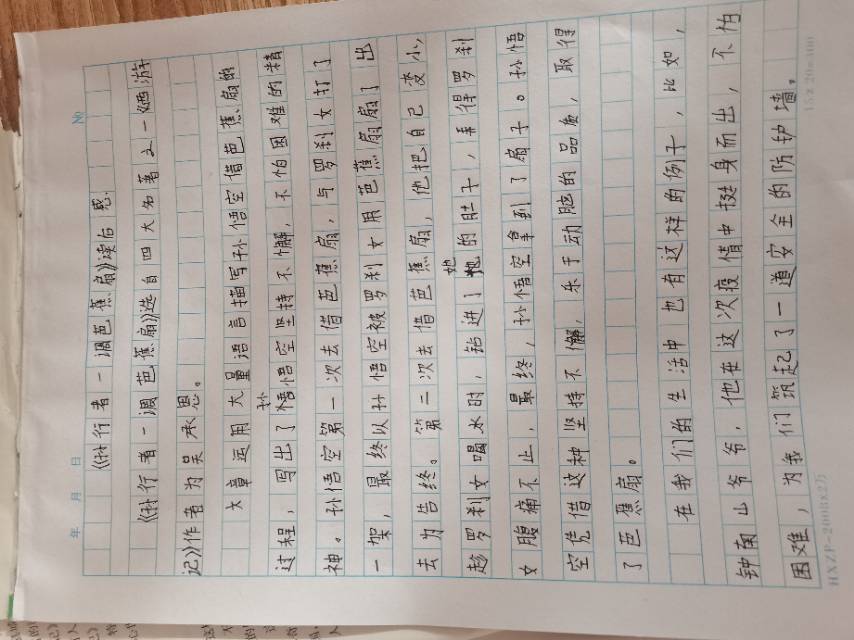 No
年 月 日
《孙行者一调芭蕉扇》读后感.
《孙行者一调芭蕉扇》选自四大名著之一《西游
记》作者为吴承恩。
文章运用大量语言描写孙悟空借芭蕉扇的
过程，写出了孙悟空坚持不懈，不怕困难的精
神。孙悟空第一次去借芭蕉扇，与罗刹女打了
一架，最终以孙悟空被罗刹女用芭蕉扇扇了出
去为告终。第二次去借芭蕉扇，他把自己变小，
趁罗刹女喝水时，钻进了她的肚子，弄得罗刹
女腹痛不止，最终，孙悟空拿到了扇子。孙悟
空凭借这种坚持不懈，乐于动脑的品质，取得
了芭蕉扇。
在我们的生活中也有这样的例子，比如，
钟南山爷爷，他在这次疫情中挺身而出，不怕
困难，为我们筑起了一道安全的防护墙。
HXZP-2008x25
15×20=300